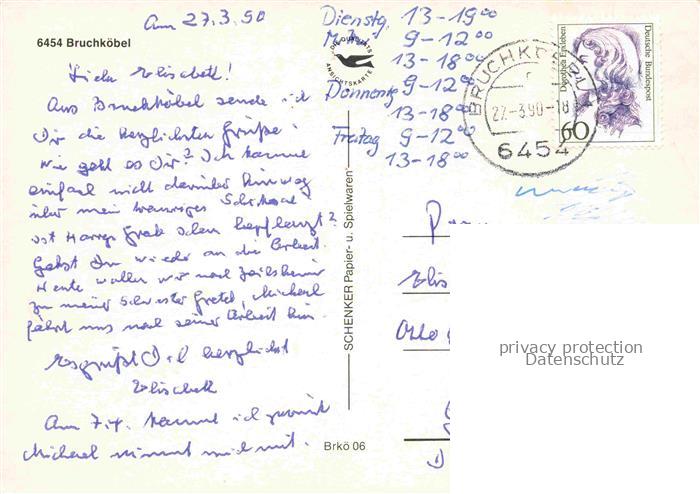 Am 27.3.90
6454 Bruchköbel
Liebe Elisabeth!
Aus Bruchköbel sende ich
Dir die herzlichsten Grüße.
Wie geht es Dir? Ich komme
einfach nicht darüber hinweg
über mein trauriges Schicksal
ist Harrys Grab schon bepflanzt?
Gehst Du wieder an die Arbeit.
Heute wollen wir nach Zeilsheim
zu meiner Schwester Gretel, Michael
fährt uns nach seiner Arbeit hin.
Es grüßt Dich herzlichst
Elisabeth
Am 7.4. komme ich zurück
Michael nimmt mich mit.
Dienstg. 13-19⁰⁰
9-12⁰⁰
13-18⁰⁰
Donnerstg 9-12⁰⁰
13-18⁰⁰
Freitag 9-12⁰⁰
13-18⁰⁰
ANSICHTSKARTE
SCHENKER Papier- u. Spielwaren
Brkö 06
BRUCHKÖBEL
27.-3.90-18
6454
Dorothea Erxleben
Deutsche Bundespost
60
Elis
Otto
privacy protection
Datenschutz